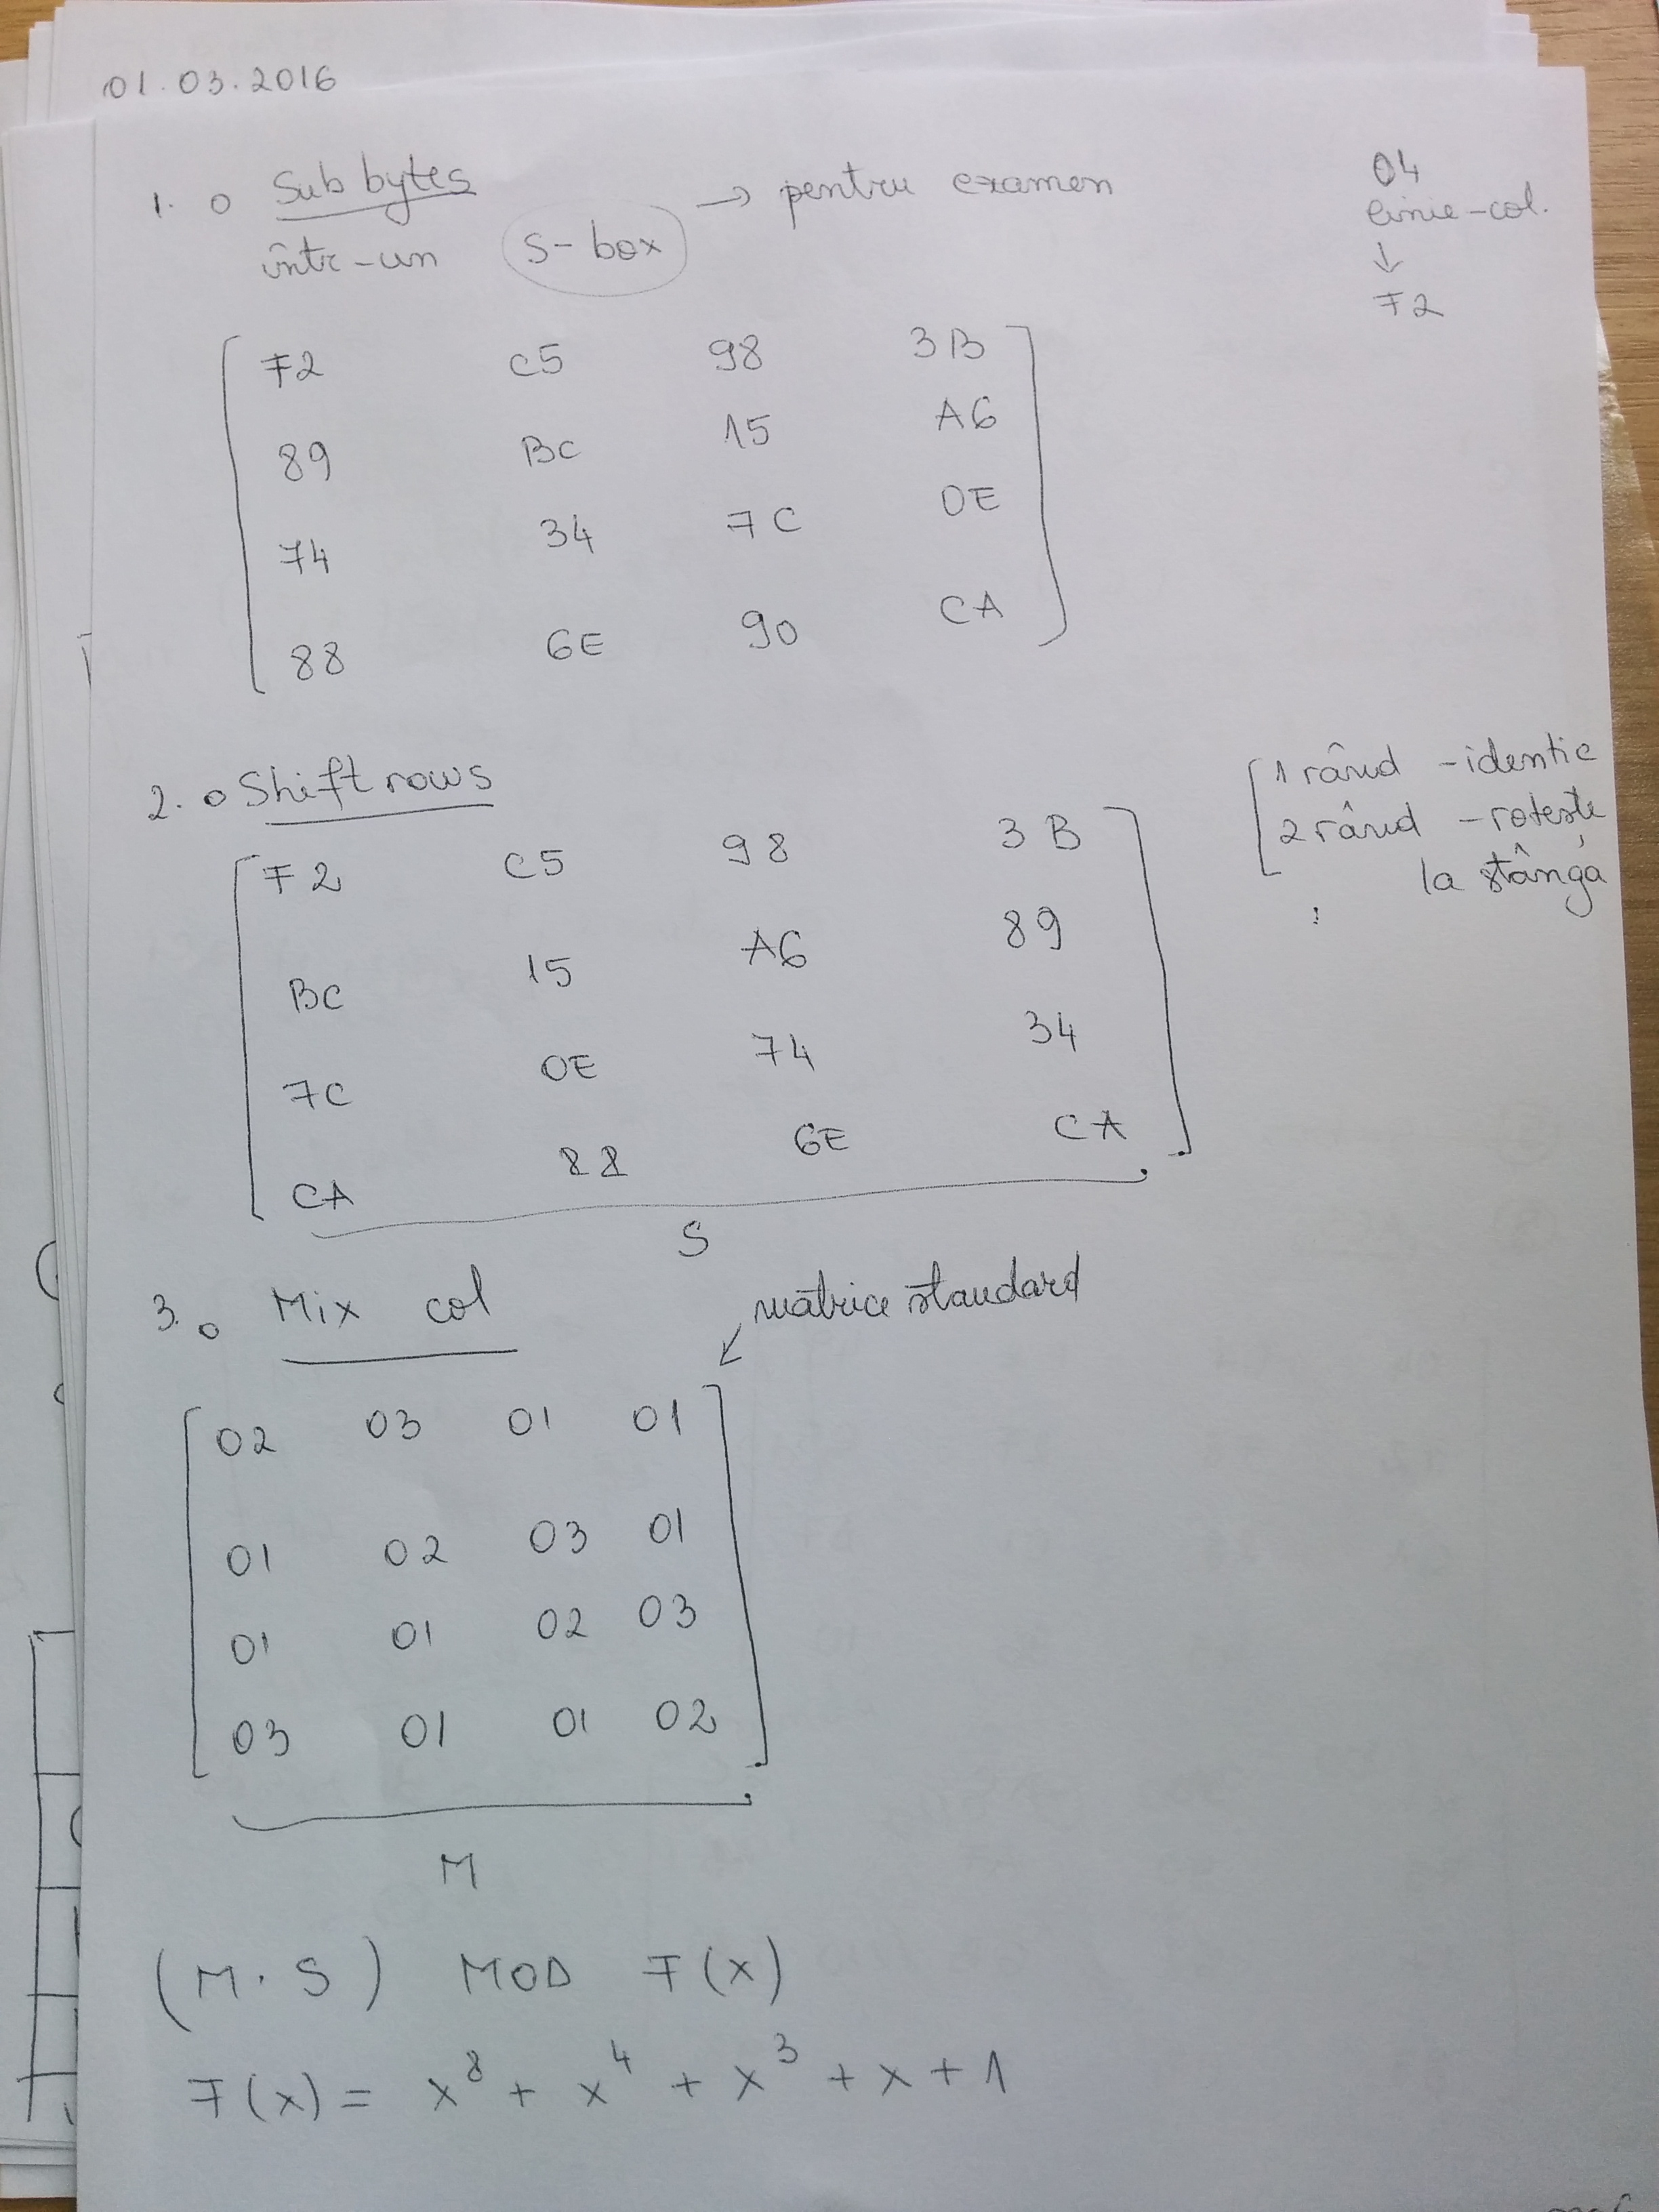 01.03.2016
1. o Sub bytes → pentru examen
într-un S-box
04
linie-col.
↓
F2
F2 C5 98 3B
89 BC 15 A6
74 34 7C 0E
88 6E 90 CA
2. o Shift rows
1 rând - identic
2 rând - rotește
la stânga
:
F2 C5 98 3B
BC 15 A6 89
7C 0E 74 34
CA 88 6E CA
S
3. o Mix col
matrice standard
02 03 01 01
01 02 03 01
01 01 02 03
03 01 01 02
M
(M · S) MOD F(x)
F(x) = x⁸ + x⁴ + x³ + x + 1